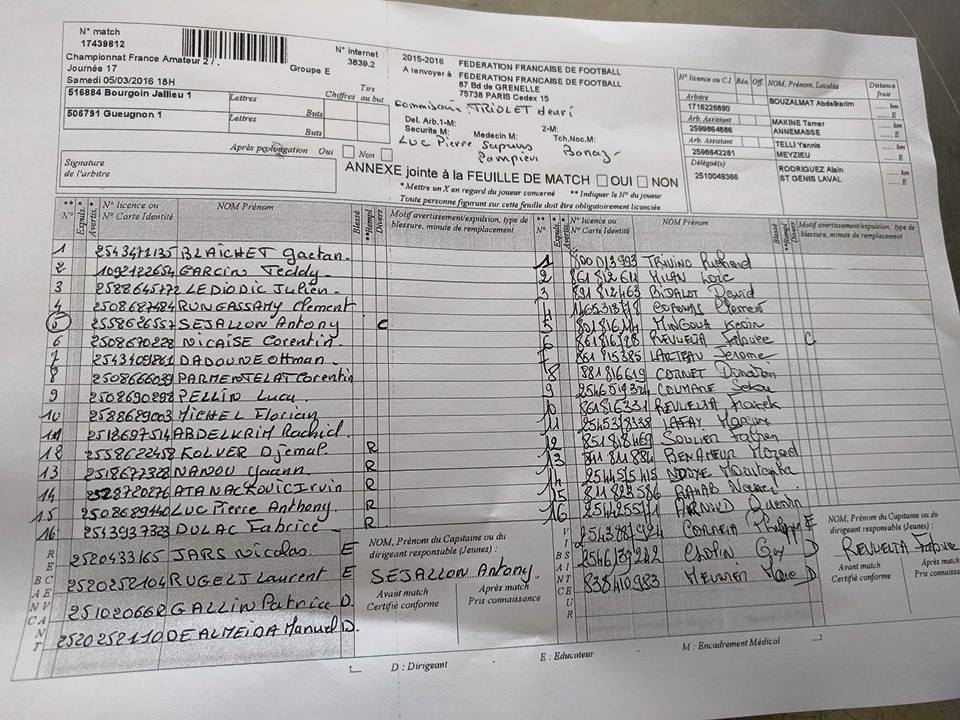 N° match
17439812
Championnat France Amateur 2 / .
Journée 17
Groupe E
Samedi 05/03/2016 18H
N° internet
3839.2
2015-2016 FEDERATION FRANCAISE DE FOOTBALL
A renvoyer à FEDERATION FRANCAISE DE FOOTBALL
87 Bd de GRENELLE
75738 PARIS Cedex 15
516884 Bourgoin Jallieu 1
Lettres Chiffres Tirs au but
Buts
506791 Gueugnon 1
Lettres
Buts
Après prolongation Oui Non
Commissaire TRIOLET Henri
Del. Arb.1-M: 2-M:
Securite M: Medecin M: Tch.Noc.M:
Luc Pierre Sapeurs Pompiers
N° licence ou C.I Bén. Off. NOM, Prénom, Localité Distance frais
Arbitre
1718226890 BOUZALMAT Abdelkarim km
Arb. Assistant MAKINE Tamer
2599864886 ANNEMASSE km
Arb. Assistant TELLI Yannis
2598642281 MEYZIEU km
Délégué(s) RODRIGUEZ Alain
2510049366 ST GENIS LAVAL km
Signature
de l'arbitre
ANNEXE jointe à la FEUILLE DE MATCH OUI NON
* Mettre un X en regard du joueur concerné ** Indiquer le N° du joueur
Toute personne figurant sur cette feuille doit être obligatoirement licenciée
** N° * Expuls. * Avertis. N° licence ou N° Carte Identité NOM Prénom Blessé **Rempl Divers Motif avertissement/expulsion, type de blessure, minute de remplacement
1 2543471135 BLAICHET Gaetan.
2 1092122654 GARCIN Teddy.
3 2588645772 LEDIODIC Julien.
4 2508687484 RUNGASSAMY Clement
5 2558626557 SEJALLON Antony C
6 2508670228 NICAISE Corentin.
7 2543409861 DADOUNE Ottman.
8 2508666039 PARMENTELAT Corentin
9 2508690298 PELLIN Lucu.
10 2588689003 MICHEL Florian
11 2518697514 ABDELKRIM Rachid.
12 2558622458 KOLVER Djemal. R
13 2518677328 NANOU Yoann. R
14 2528720276 ATANACKOVIC Irvin R
15 2508689140 LUC Pierre Anthony. R
16 2543937323 DULAC Fabrice R
2520433165 JARS Nicolas. E
2520252104 RUGELJ Laurent E
251020668 GALLIN Patrice D.
2520252110 DE ALMEIDA Manuel D.
BANC RECEVANT
NOM, Prénom du Capitaine ou du dirigeant responsable (Jeunes) :
SEJALLON Antony.
Avant match Certifié conforme
Après match Pris connaissance
** N° * Expuls. * Avertis. N° licence ou N° Carte Identité NOM Prénom Blessé **Rempl Divers Motif avertissement/expulsion, type de blessure, minute de remplacement
1 800013993 TRIVINO Richard
2 861812611 MILAN Loic
3 891812463 BIDALOT David
4 Clement
5 MINGOUA Kevin
6 REVUELTA Fabrice C
7 861715385 LARTEAU Jerome
8 881816619 CORNET Donation
9 2546519324 COUMARE Sekou
10 861816331 REVUELTA Franck
11 2545378138 LAFAY
12 851818469 SOULIER Fabien
13 BENAMEUR Morad
14 2544515415 NDIAYE Moustapha
15 811823586 RAHAB
16 ARNAUD Quentin
2543781924 CORREIA Philippe E
2546139242 CHOPIN Guy D
838410983 MEUNIER Marc D
VISITEUR BANC
NOM, Prénom du Capitaine ou du dirigeant responsable (Jeunes) :
REVUELTA Fabrice
Avant match Certifié conforme
Après match Pris connaissance
D : Dirigeant E : Educateur M : Encadrement Médical